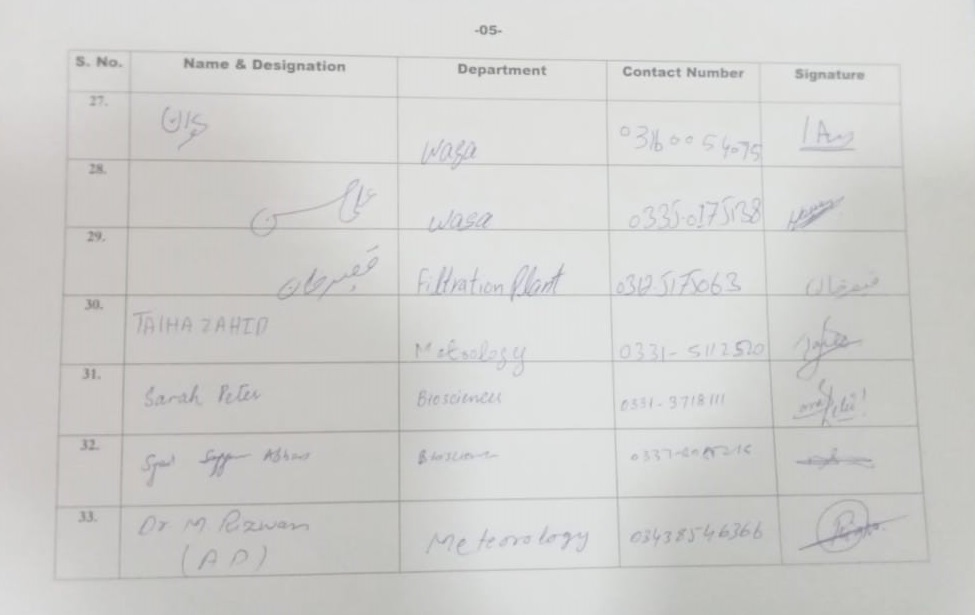 -05-
S. No. Name & Designation Department Contact Number Signature
27. Wasa 03160054075
28. Wasa 0335-0175138
29. قیصر خان Filtration Plant 03125175063
30. TALHA ZAHID Metrology 0331-5112520
31. Sarah Peter Biosciences 0331-3718111
32. Syed Abbas Biosciences
33. Dr M Rizwan Meteorology 03438546366
(AD)